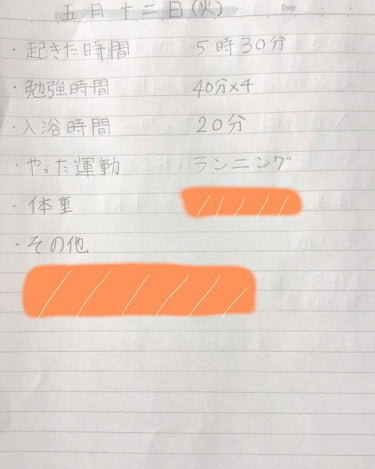 五月十二日(火)
Date
・起きた時間 5時30分
・勉強時間 40分×4
・入浴時間 20分
・やった運動 ランニング
・体重
・その他